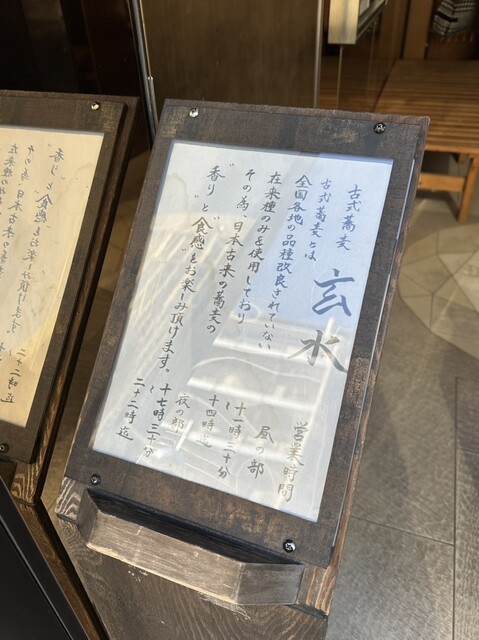 古式蕎麦
玄水
古式蕎麦とは
全国各地の品種改良されていない
在来種のみを使用しており
その為、日本古来の蕎麦の
"香り"と"食感"をお楽しみ頂けます。
営業時間
昼の部
十一時三十分
～
十四時迄
夜の部
十七時三十分
～
二十二時迄
香り"と"食感をお楽しみ頂けます。
その為、日本古来の蕎麦の
在来種の
二十二時迄